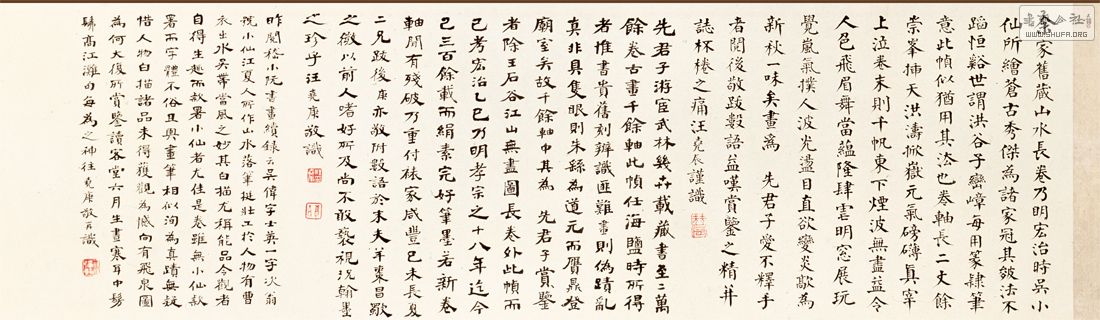 家舊藏山水長卷乃明宏治時吳小
仙所繪蒼古秀傑為諸家冠其皴法不
蹈恒谿世謂洪谷子巒嶂每用篆隸筆
意此幀似猶用其法也卷軸長二丈餘
崇峯插天洪濤掀嶽元氣磅礴真宰
上泣卷末則千帆東下煙波無盡益令
人色飛眉舞當蘊隆肆雲明窓展玩
覺嵐氣撲人波光盪目直欲變炎歊為
新秋一味矣畫為 先君子愛不釋手
者閱後敬跋數語益嘆賞鑒之精并
誌杯棬之痛汪堯辰謹識
先君子游宦武林幾卅載藏書至二萬
餘卷古畫千餘軸此幀任海鹽時所得
者惟書貴舊刻辨識匪難畫則偽蹟亂
真非具隻眼則朱繇為道元而贋鼎登
廟室矣故千餘軸中其為 先君子賞鑒
者除王石谷江山無盡圖長卷外此幀而
已考宏治乙巳乃明孝宗之十八年迄今
已三百餘載而絹素完好筆墨若新卷
軸間有殘破乃重付裱家咸豐己未長夏
二兄跋後康亦敬附數語於末夫羊棗昌歜
之微以前人嗜好所及尚不敢褻視況翰墨
之珍乎汪堯康敬識
昨閱嵇小阮書畫續錄云吳偉字士英一字次翁
號小仙江夏人所作山水落筆挺壯工於人物有曹
衣出水吳帶當風之妙其白描尤稱能品今觀者
自得生趣而款署小仙者尤佳是卷雖無小仙款
署而字體不俗且與畫筆相似洵為真蹟無疑
惜人物白描諸品未得獲觀為憾向有飛泉圖
為何大復所賞鑒讀客堂六月生晝寒耳中髣
髴高江灘句每為之神往堯康敬識
WWW.SHUFA.ORG